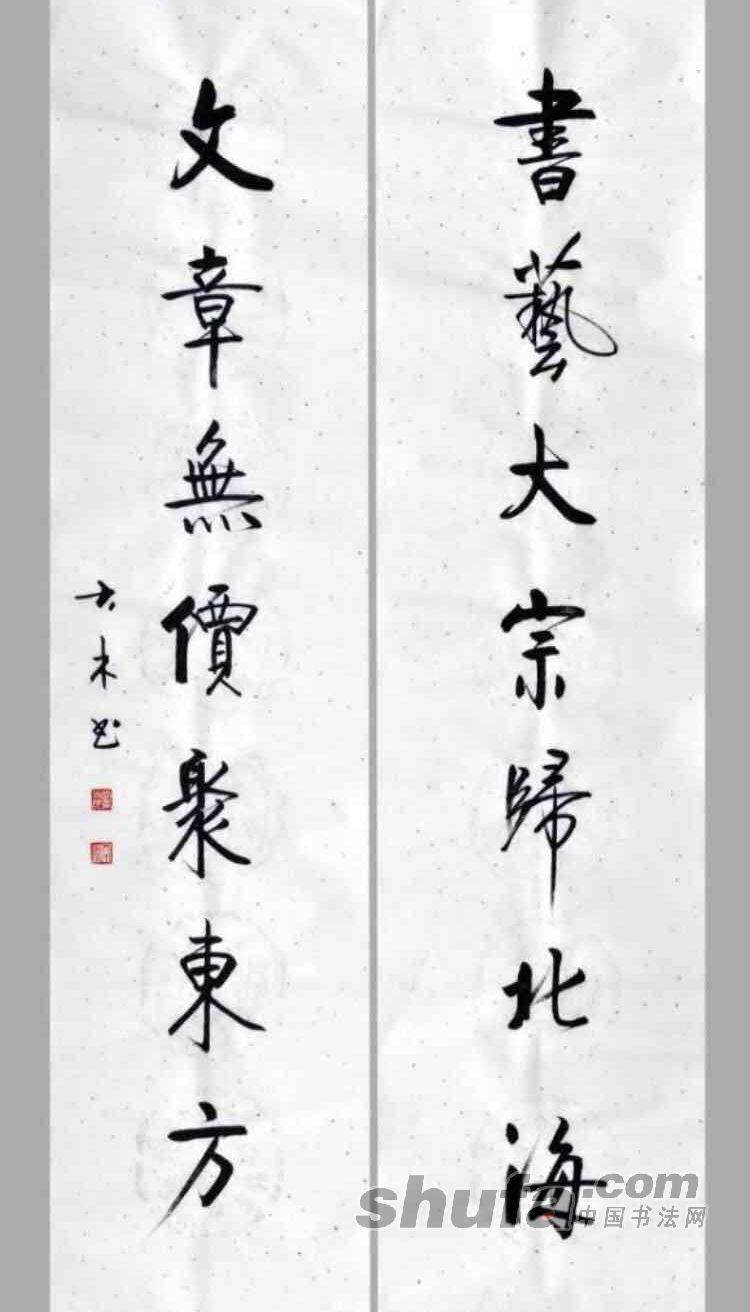 書藝大宗歸北海
文章無價聚東方
大木书
shufa.com
中国书法网